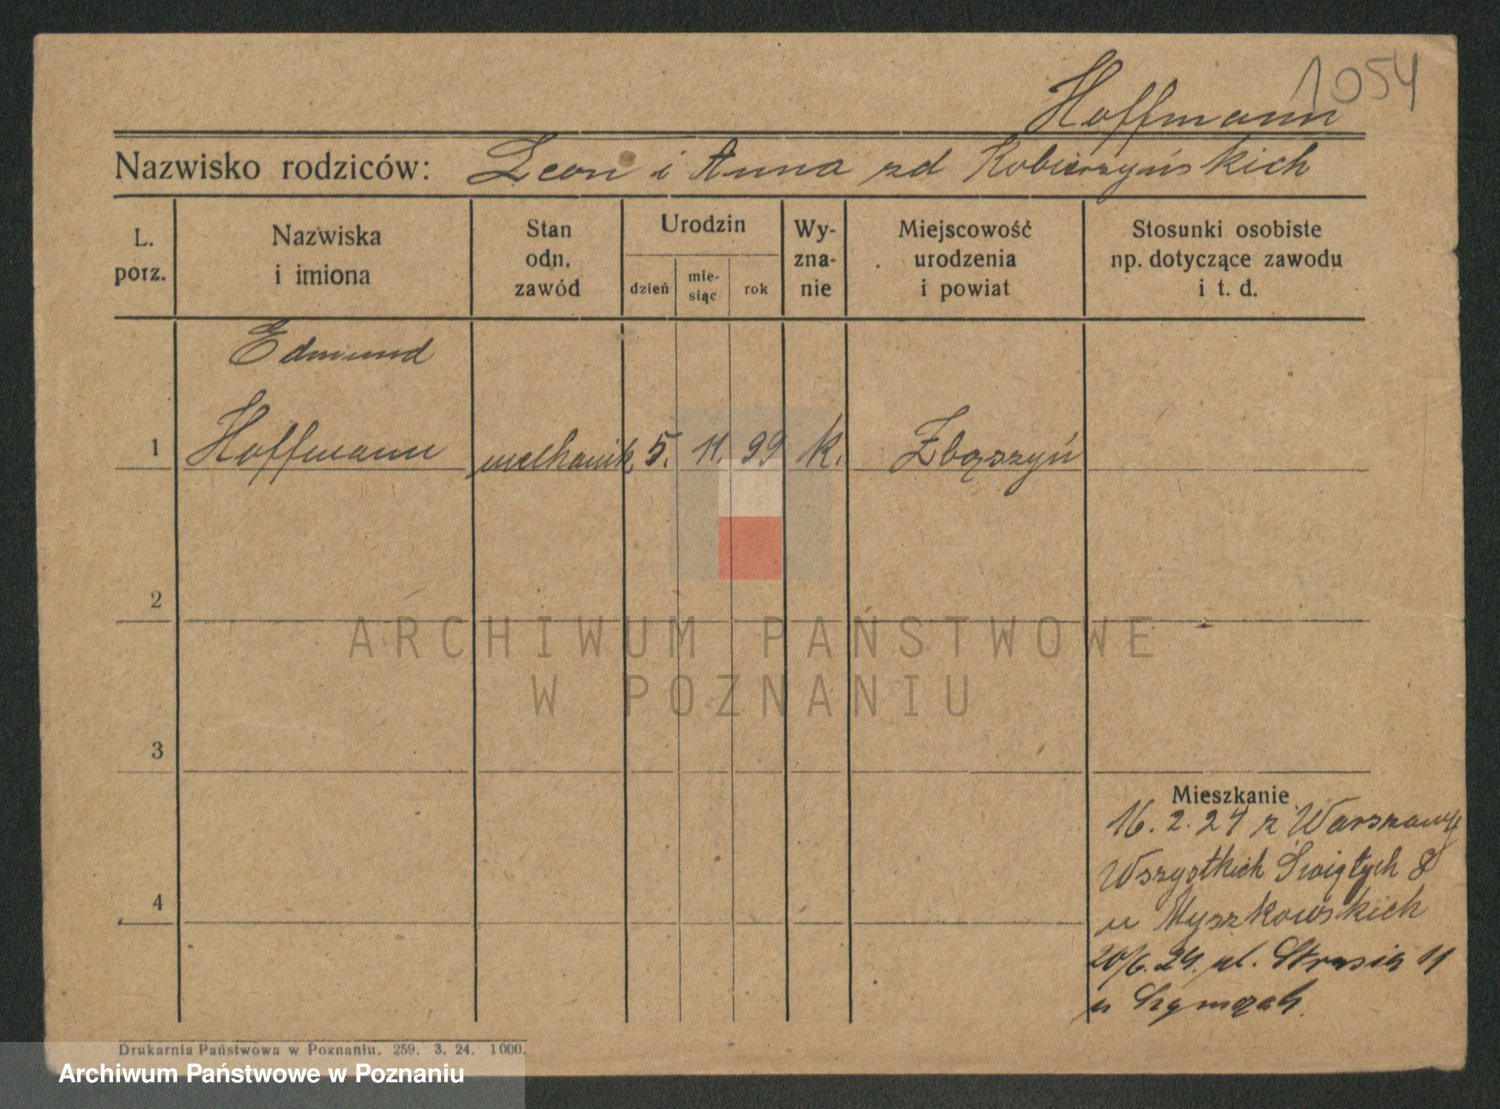 1054
Hoffmann
Nazwisko rodziców: Leon i Anna zd Kobierzyńskich
L. porz.
Nazwiska i imiona
Stan odn. zawód
Urodzin
dzień
mie-siąc
rok
Wy-zna-nie
Miejscowość urodzenia i powiat
Stosunki osobiste np. dotyczące zawodu i t. d.
Edmund
1 Hoffmann mechanik 5. 11. 99 k. Zbąszyń
2
ARCHIWUM PAŃSTWOWE
W POZNANIU
3
Mieszkanie
16. 2. 24 z Warszawy
Wszystkich Świętych 8
4
u Myszkowskich
20/6. 24. ul. Strusia 11
u
Drukarnia Państwowa w Poznaniu. 259. 3. 24. 1000.
Archiwum Państwowe w Poznaniu